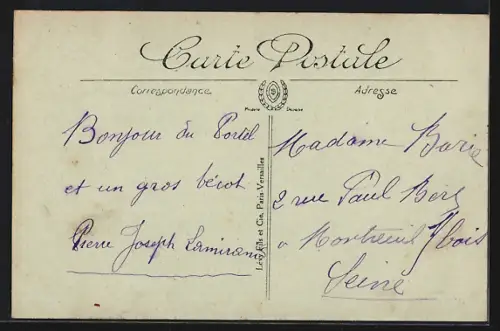 Carte Postale
Correspondance
Adresse
Bonjour du Portel
et un gros bécot
Pierre Joseph
Lévy Fils et Cie, Paris-Versailles
Madame
2 rue Paul Bert
à Montreuil s/bois
Seine